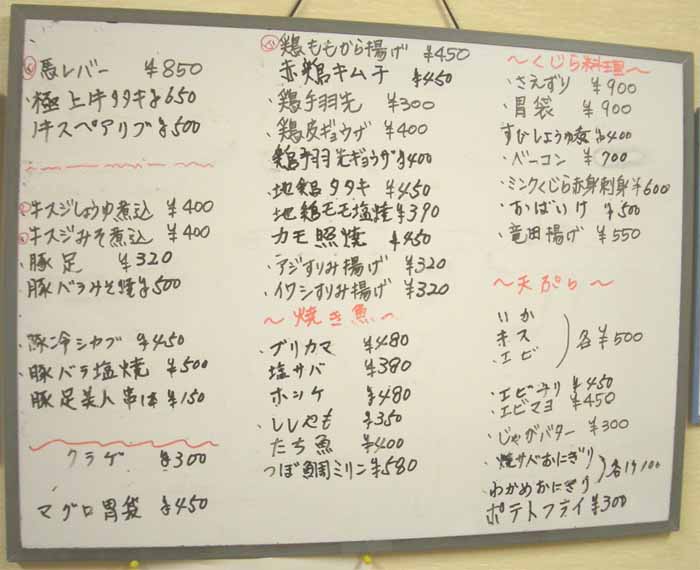 馬レバー ¥850
・極上牛タタキ ¥650
牛スペアリブ ¥500
牛スジしょうゆ煮込 ¥400
牛スジみそ煮込 ¥400
・豚足 ¥320
・豚バラみそ焼 ¥500
豚冷シャブ ¥450
・豚バラ塩焼 ¥500
豚足美人串1本 ¥150
クラゲ ¥300
マグロ胃袋 ¥450
鶏ももから揚げ ¥450
赤鶏キムチ ¥450
・鶏手羽先 ¥300
・鶏皮ギョウザ ¥400
鶏手羽先ギョウザ ¥400
・地鶏タタキ ¥450
地鶏モモ塩焼 ¥390
カモ照焼 ¥450
・アジすりみ揚げ ¥320
・イワシすりみ揚げ ¥320
〜焼き魚〜
・ブリカマ ¥480
塩サバ ¥380
ホッケ ¥480
・ししゃも ¥350
たち魚 ¥400
つぼ鯛ミリン ¥580
〜くじら料理〜
・さえずり ¥900
・胃袋 ¥900
¥400
・ベーコン ¥700
・ミンクくじら赤身刺身 ¥600
・おばいけ ¥500
・竜田揚げ ¥550
〜天ぷら〜
いか
キス
・エビ
各¥500
・エビチリ ¥450
・エビマヨ ¥450
・じゃがバター ¥300
・焼サバおにぎり
わかめおにぎり
各1ケ100
ポテトフライ ¥300